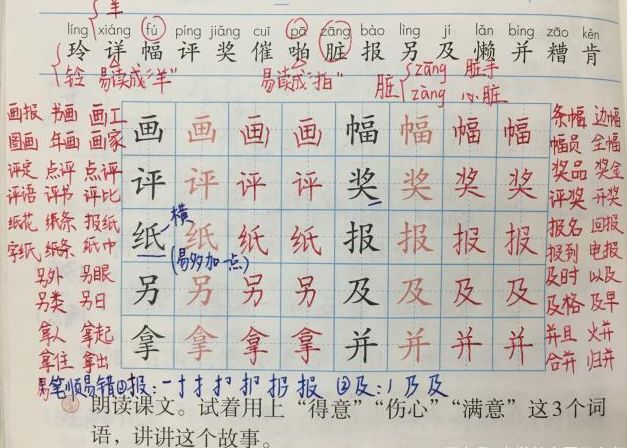 羊
líng xiáng fú píng jiǎng cuī pā zāng bào lìng jí lǎn bìng zāo kěn
玲 详 幅 评 奖 催 啪 脏 报 另 及 懒 并 糟 肯
铃 易读成"羊" 易读成"拍" 脏 zāng 脏手
zàng 心脏
画报 书画 画工 画 画 画 画 幅 幅 幅 幅 条幅 边幅
图画 年画 画家 幅员 全幅
评定 点评 点评 评 评 评 评 奖 奖 奖 奖 奖品 奖金
评语 评书 评比 评奖 开奖
纸花 纸条 报纸 纸 横 纸 纸 纸 报 报 报 报 报名 回报
字纸 纸条 纸巾 (易多加一点) 报到 电报
另外 另眼 另 另 另 另 及 及 及 及 及时 以及
另类 另日 及格 及早
拿人 拿起 拿 拿 拿 拿 并 并 并 并 并且 火并
拿住 拿出 合并 归并
笔顺易错①报:一 扌 报 ②及:丿 乃 及
朗读课文。试着用上“得意”“伤心”“满意”这3个词
语，讲讲这个故事。